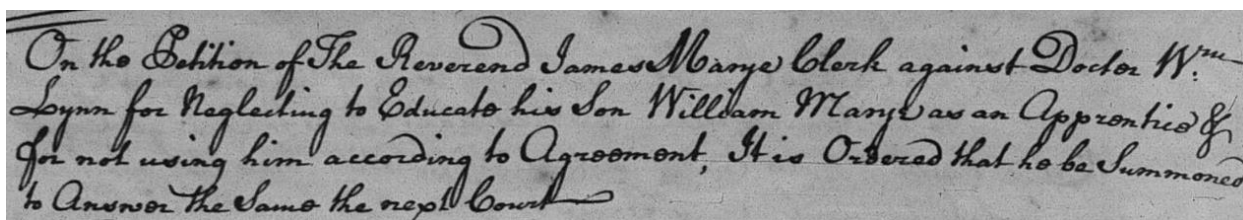 On the Petition of The Reverend James Marye Clerk against Doctor Wm
Lynn for Neglecting to Educate his Son William Marye as an Apprentice &
for not using him according to Agreement, It is Ordered that he be Summoned
to Answer the Same the next Court